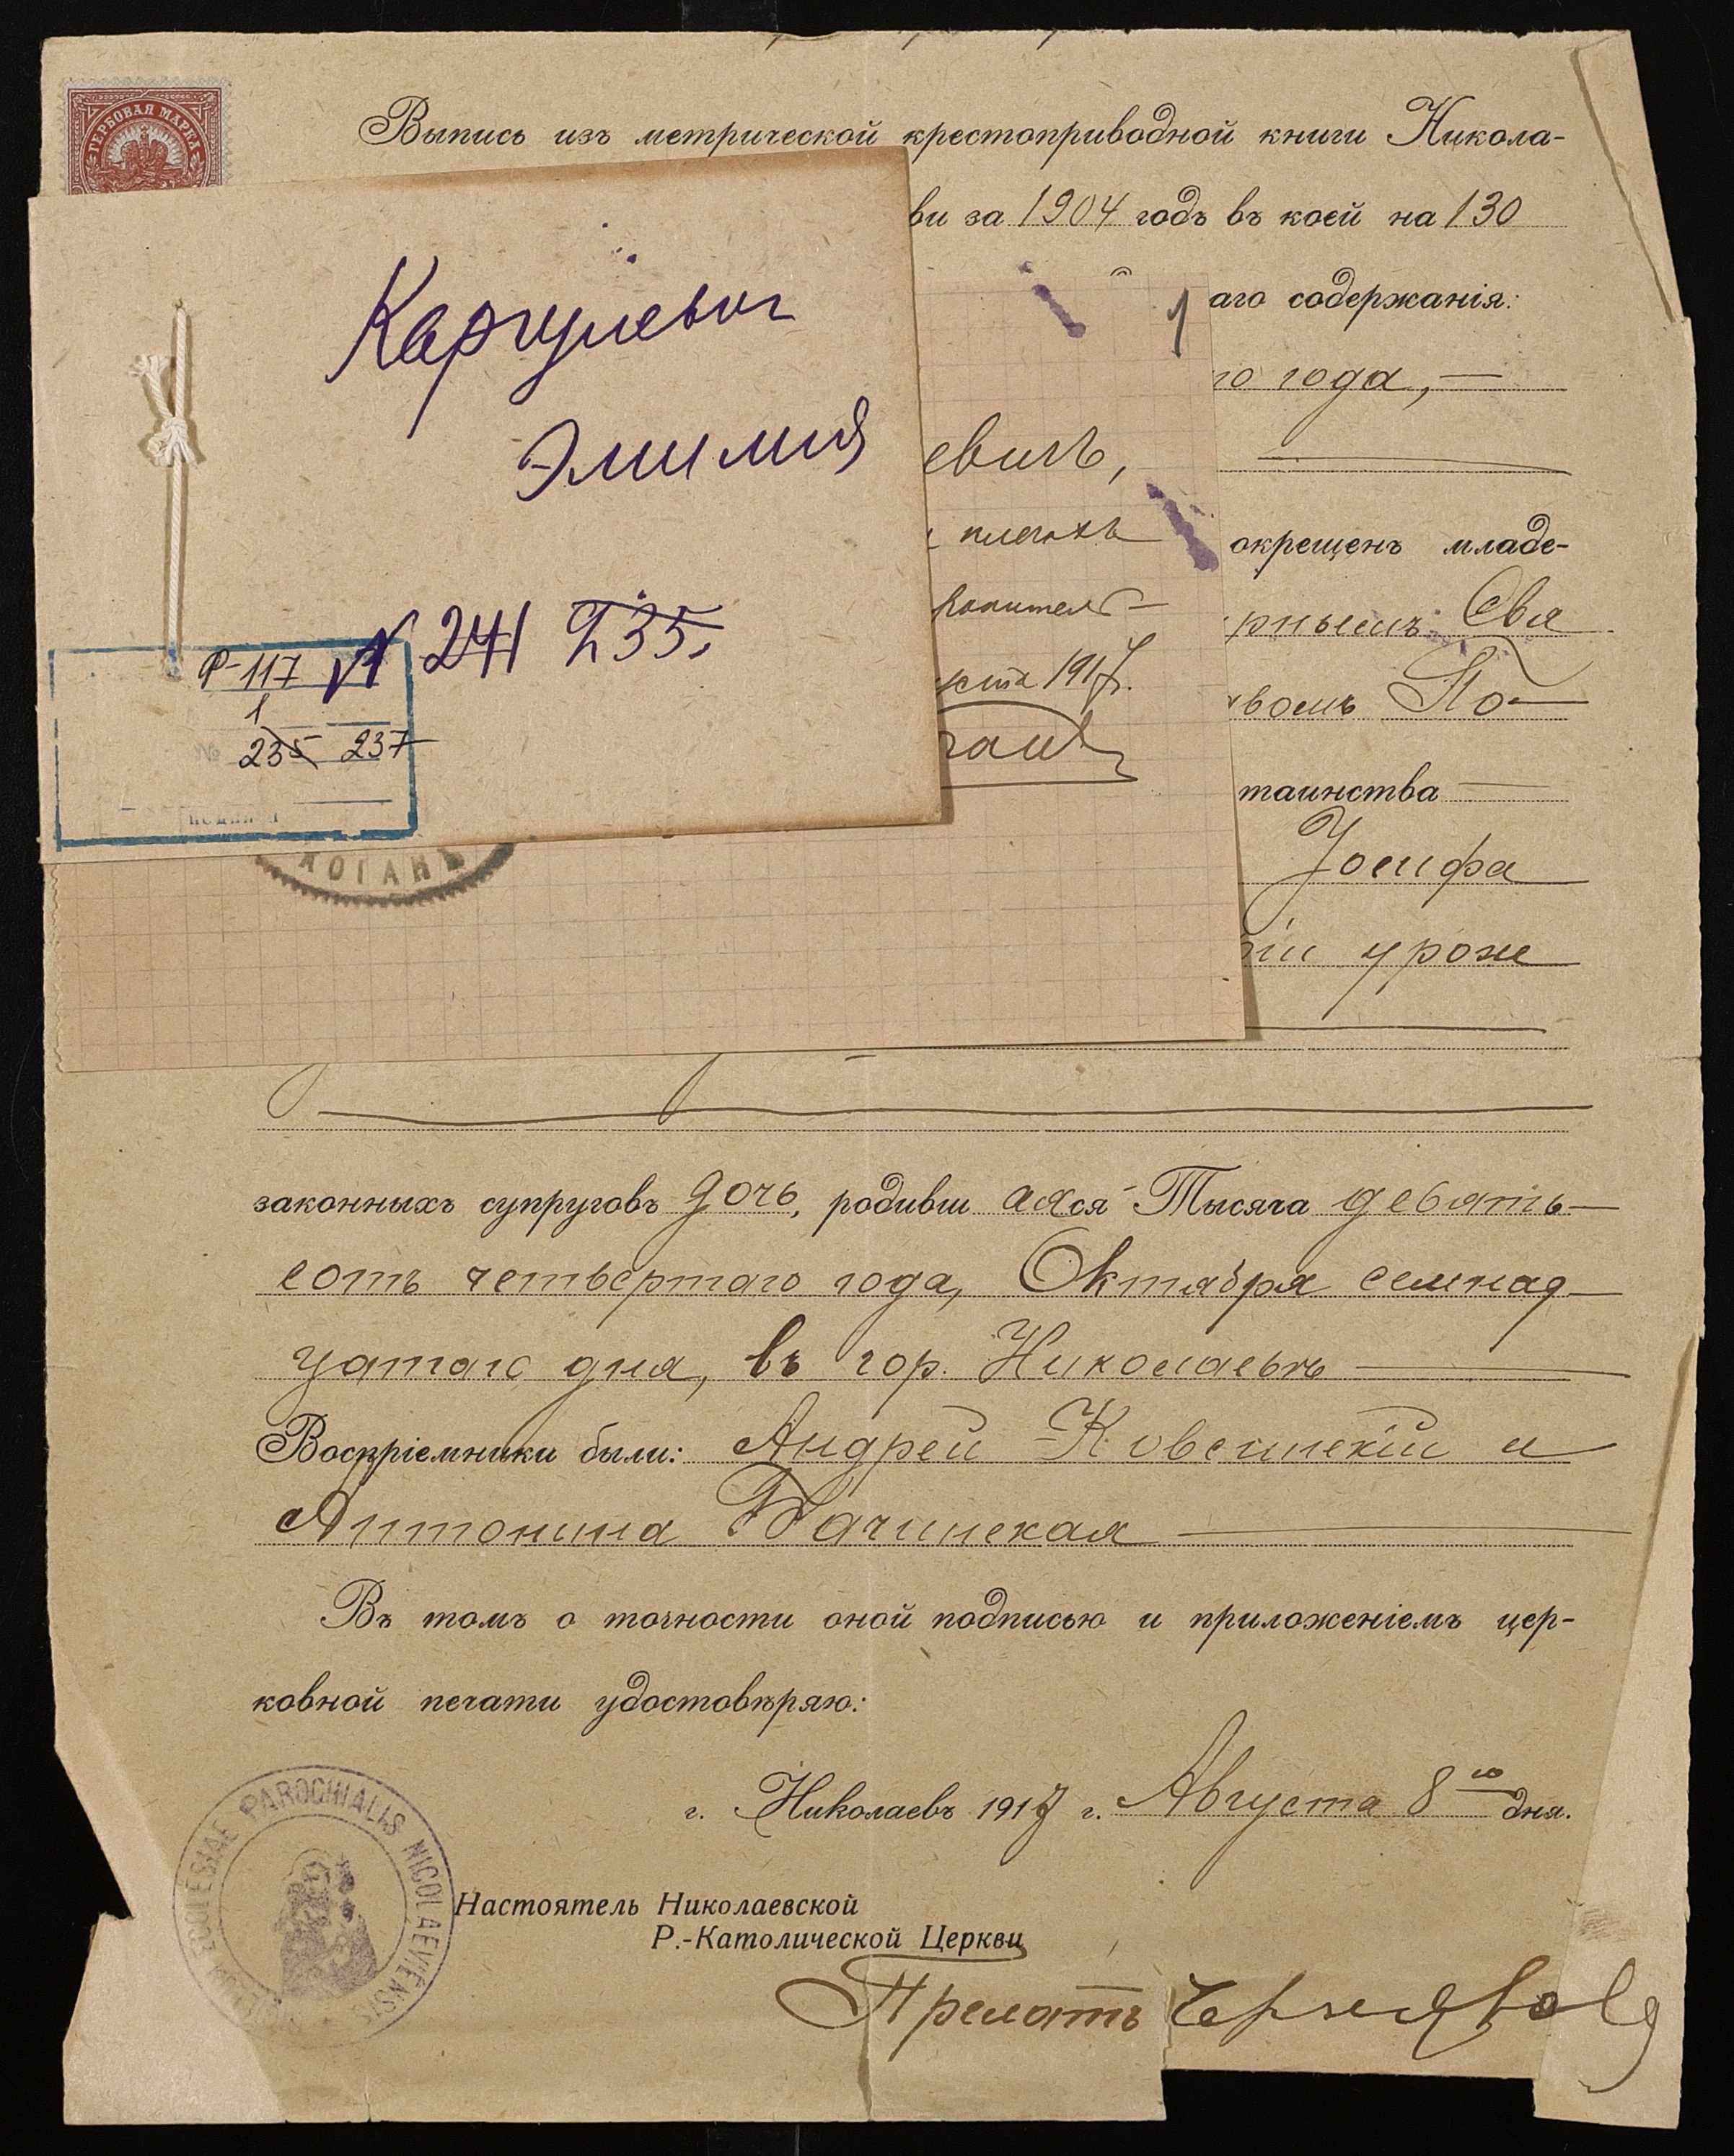 ГЕРБОВАЯ МАРКА
Выпись изъ метрической крестоприводной книги Никола-
ви за 1904 годъ въ коей на 130
аго содержанія:
го года, —
окрещенъ младе-
Свя
вомъ По-
таинства
Іосифа
уроже
1
евичъ,
1917.
Эмилия
№ 241 235.
Р-117
1
№ 235 237
КОГАНЪ
законныхъ супруговъ дочь, родивш аяся Тысяча девять-
сотъ четвертаго года, Октября семнад
цатаго дня, въ гор. Николаевѣ
Воспріемники были: Андрей и
Антонина Бачинская
Въ томъ о точности оной подписью и приложеніемъ цер-
ковной печати удостовѣряю:
г. Николаевъ 1917 г. Августа 8 го дня.
ECCLESIAE PAROCHIALIS NICOLAEVIENSIS
Настоятель Николаевской
Р.-Католической Церкви
Прелатъ